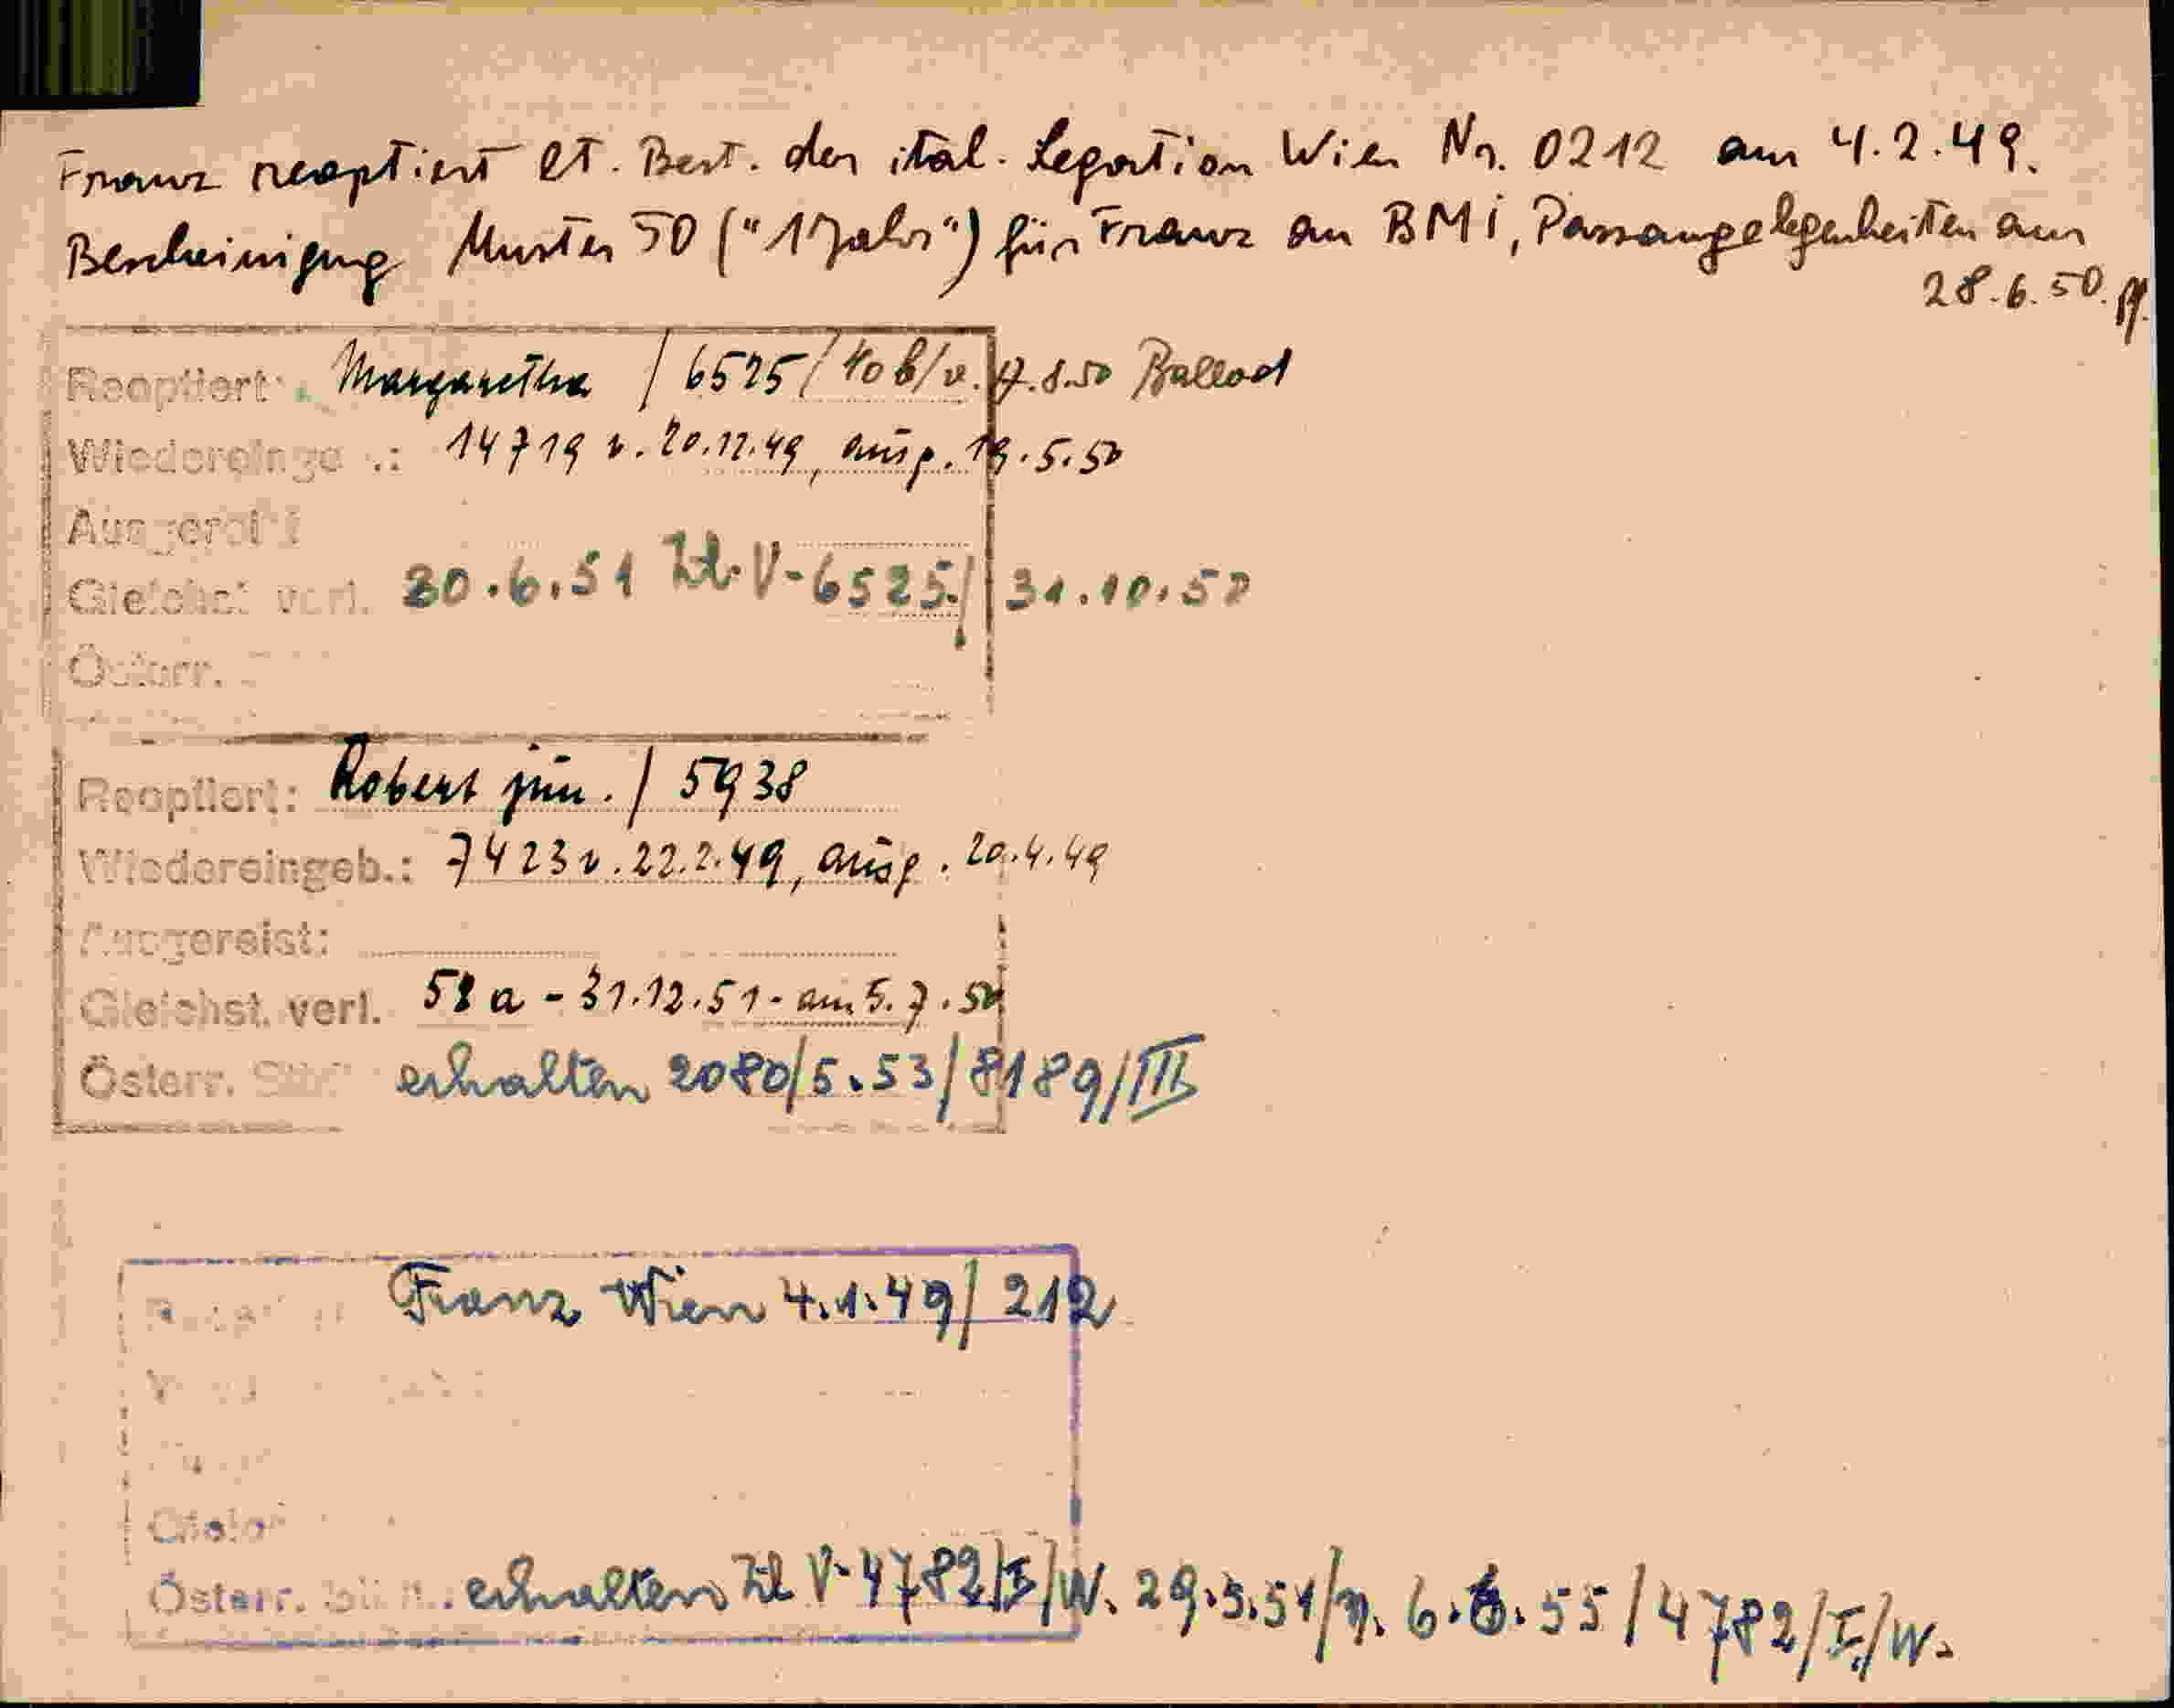 Franz reoptiert lt. Best. der ital. Legation Wien Nr. 0212 am 4.2.49.
Bescheinigung Muster 50 ("1 Jahr") für Franz an BMI, Passangelegenheiten am
28.6.50.
Reoptiert: Margaretha / 6525 / 40b/v. 17.8.50 Ballod
Wiedereinge .: 14719 v. 20.12.49, ausg. 19.5.50
Gleichst verl. 30.6.51 Zl. V-6525/ 31.10.50
Österr.
Reoptiert: Robert jun. / 5938
Wiedereingeb.: 7423 v. 22.2.49, ausg. 20.4.49
Ausgereist:
Gleichst. verl. 58 a - 31.12.51 - am 5.7.50
Österr. erhalten 2080/5.53/8189/III
Franz Wien 4.1.49/ 212
Österr. erhalten Zl V-4782/I/W. 29.5.51/n. 6.6.55 / 4782/I/W.